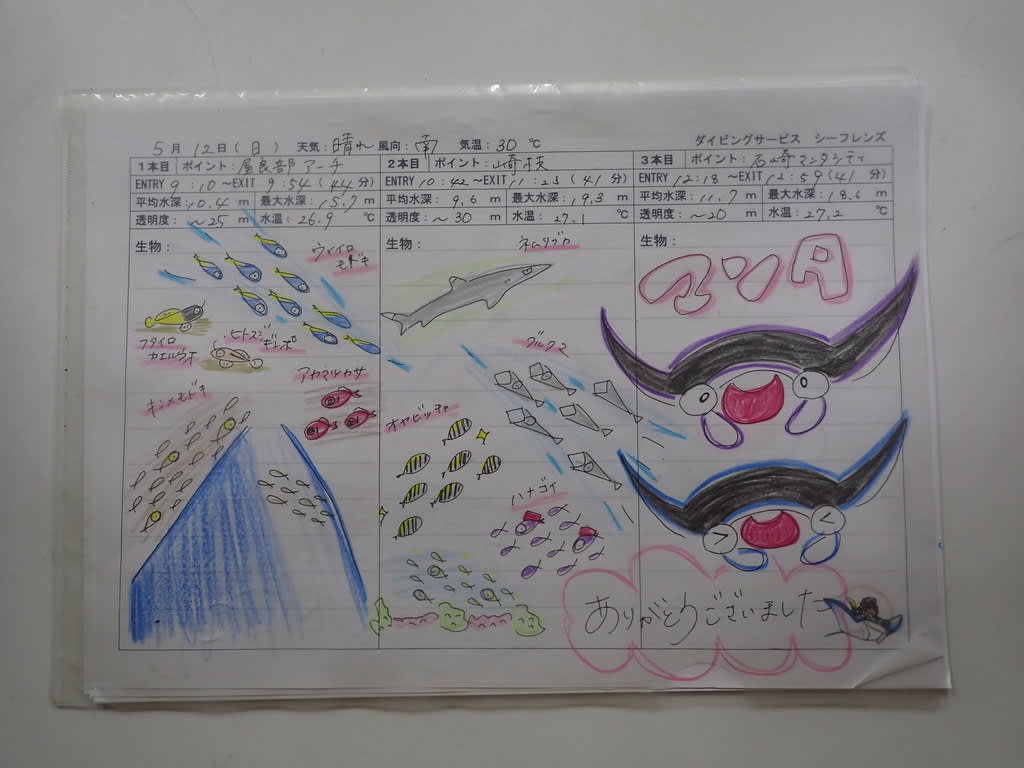 5月 12日(日) 天気:晴れ 風向:南 気温:30℃ ダイビングサービス シーフレンズ
1本目 ポイント:屋良部アーチ
ENTRY 9:10~EXIT 9:54(44分)
平均水深:10.4 m 最大水深:15.7 m
透明度:~25 m 水温:26.9 ℃
生物:
ウメイロ
モドキ
フタイロ
カエルウオ
ヒトスジ
ギンポ
アヤメカサゴ
キンメモドキ
2本目 ポイント:崎枝
ENTRY 10:42~EXIT 11:23(41分)
平均水深:9.6 m 最大水深:19.3 m
透明度:~30 m 水温:27.1 ℃
生物:
ネムリブカ
グルクマ
オヤビッチャ
ハナゴイ
3本目 ポイント:石崎マンタシティ
ENTRY 12:18~EXIT 12:59(41分)
平均水深:11.7 m 最大水深:18.6 m
透明度:~20 m 水温:27.2 ℃
生物:
マンタ
ありがとうございました